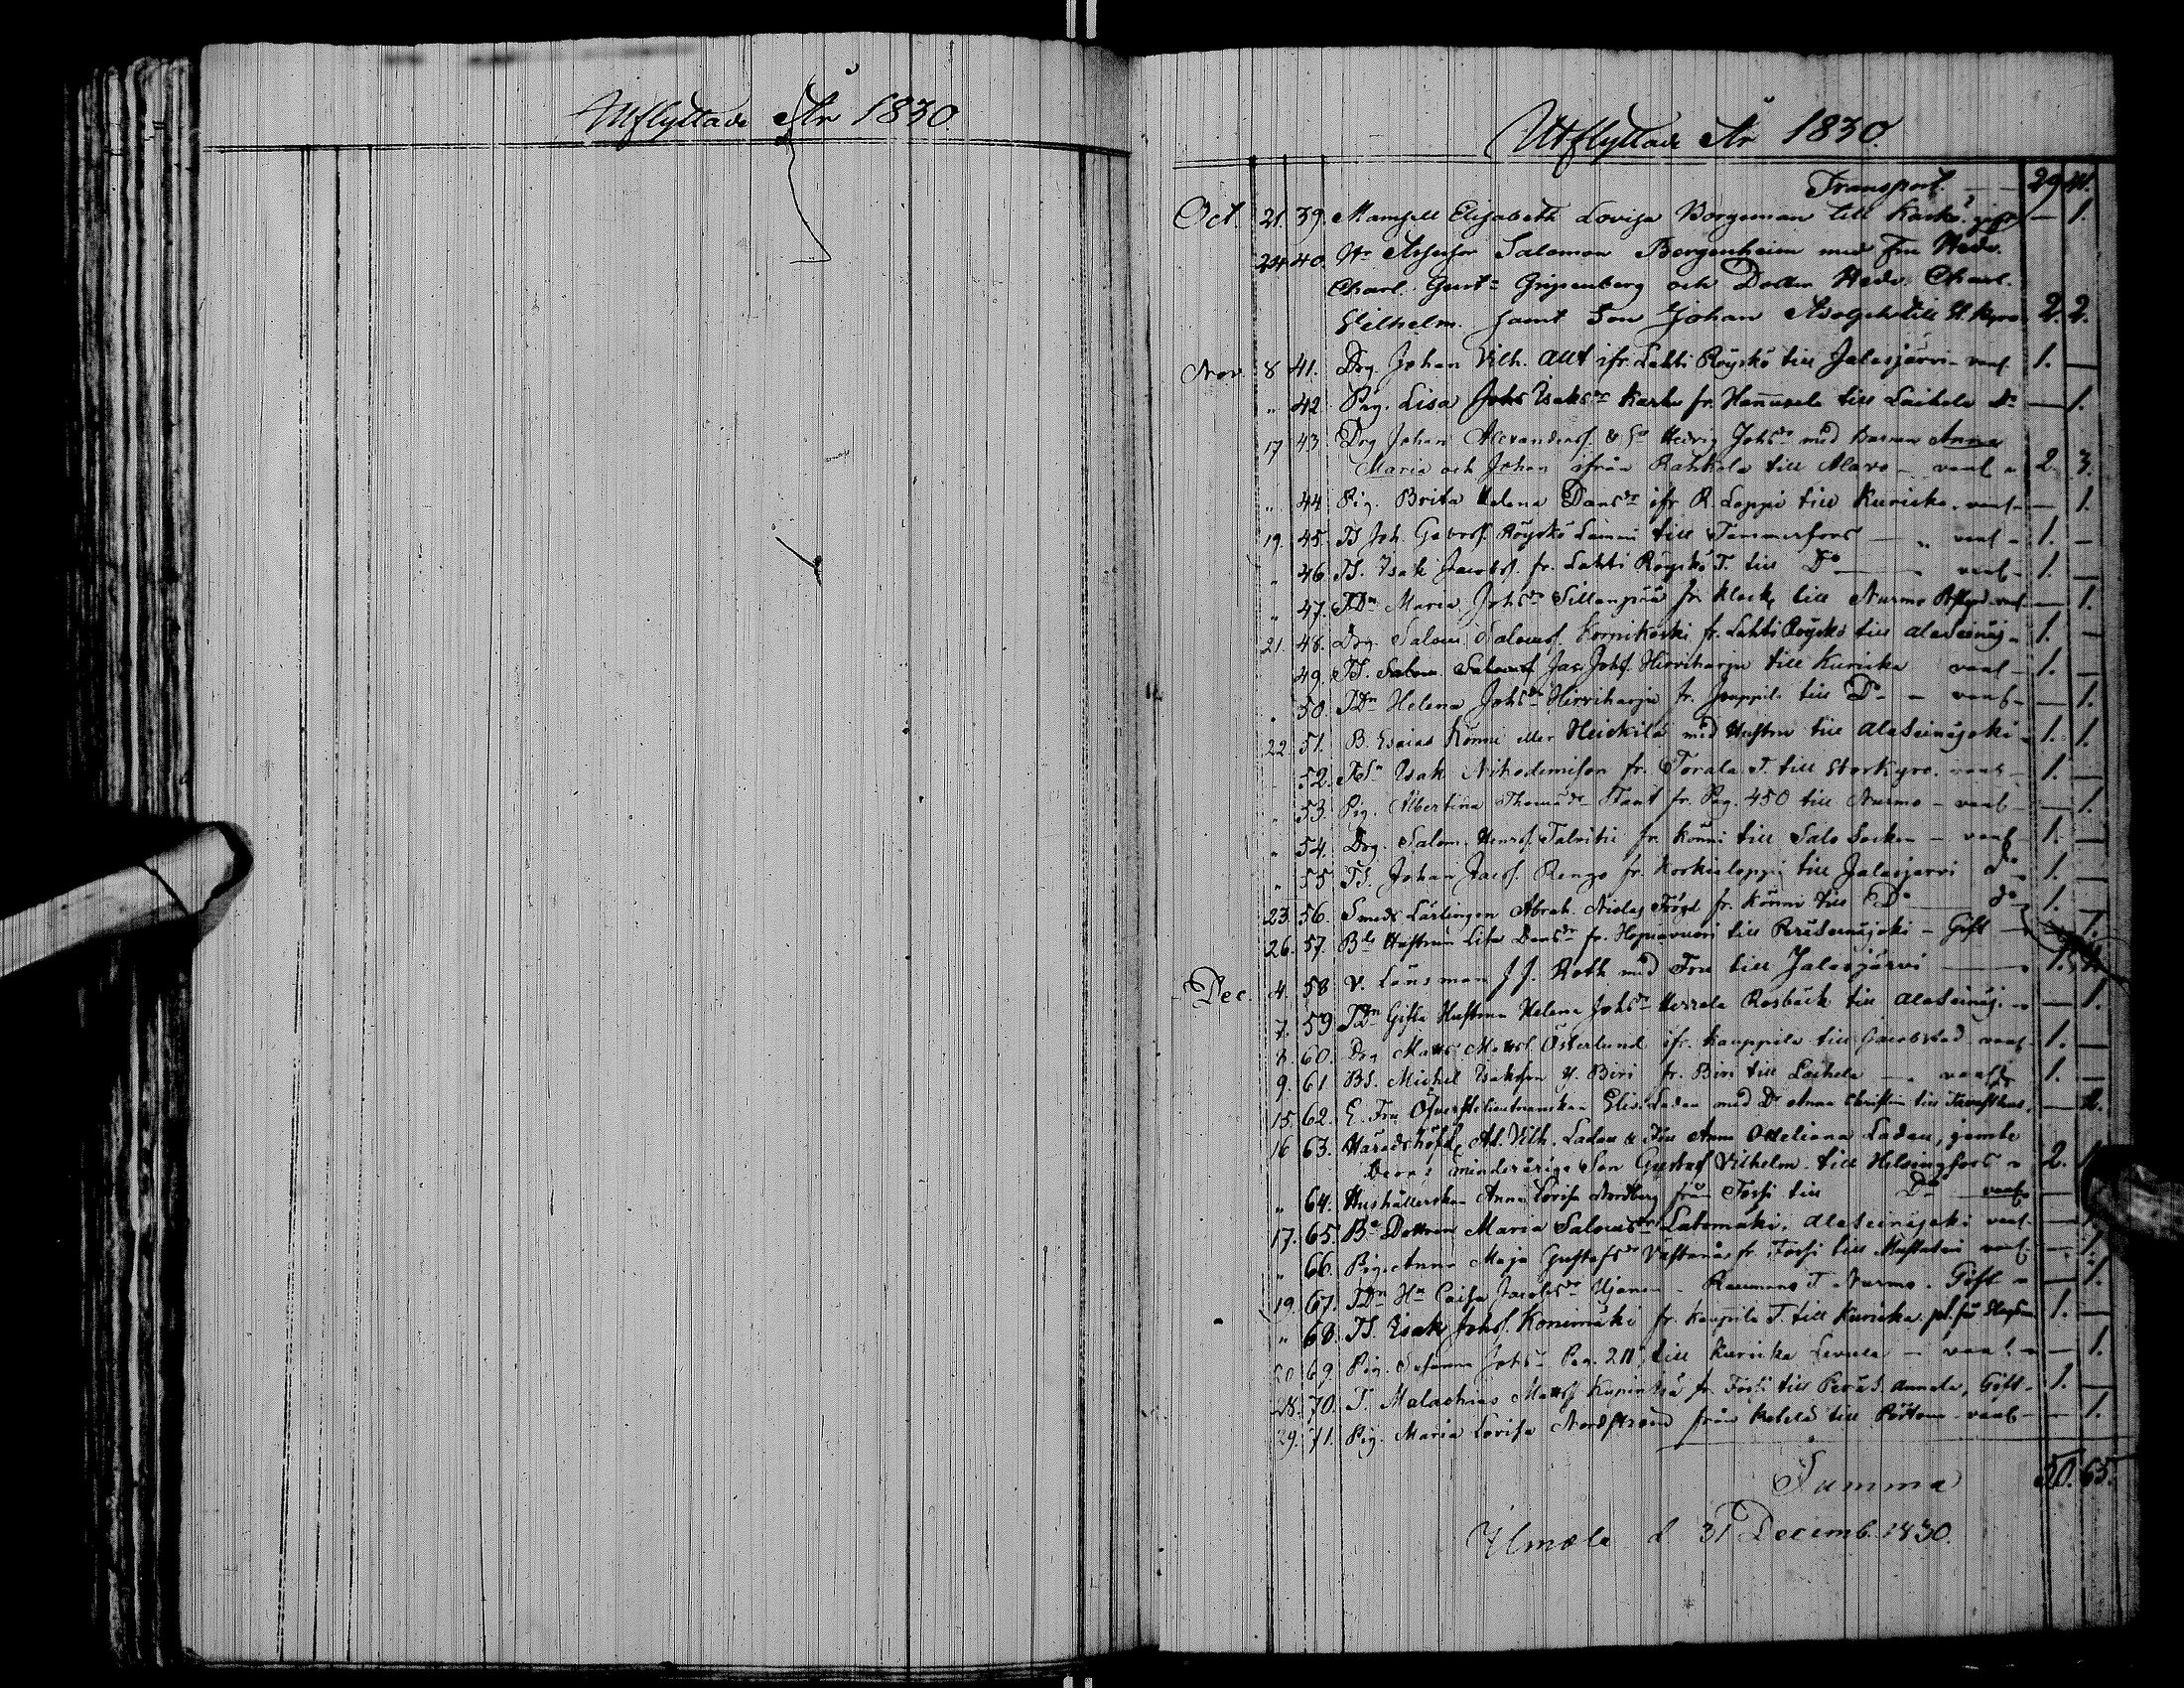 Utflyttade År 1830.
Utflyttade År 1830.
Transport — 29 41.
Oct. 21. 39. Mamsell Elisabeth Lovisa Borgeman till Kasko. gift — 1.
24 40. Hr Assessor Salomon Borgenheim med Fru Hedv.
Charl. Gust. Gripenberg och Dotter Hedv. Charl.
Vilhelm. samt Son Johan Adolph till St. Kyro. 2. 2.
Nov. 8 41. Drg. Johan Vilh. Allt ifr. Lahti Röyskö till Jalasjärvi — vaal 1. —
" 42. Pig. Lisa Johs Isaksdr Karhu fr. Hannuxela till Laihela do — 1.
17 43. Drg Johan Alexanders. & Ho Hedvig Johsdr med Barnen Anna
Maria och Johan ifrån Rahkola till Alavo — vaal " 2. 3.
" 44 Pig. Brita Helena Dansdr ifr R. Loppi till Kuricka. vaal — 1.
19. 45. TS Joh. Gabrs. Röyskö Lammi till Tammerfors — " vaal — 1. —
" 46. TS. Isak Jacobs. fr. Lahti Röyskö T. till Do — vaal — 1. —
" 47. TDn Maria Johsdr Sillanpää fr. Klock. till Nurmo — 1.
21. 48. Drg. Salom. Saloms. Hornikoski fr. Lahti Röyskö till AlaSeinäj. 1. —
49. TS. Salom. Saloms. Jac. Johs. Hirviharju till Kuricka vaal — 1. —
" 50. TDn Helena Johsdr Hirviharju fr. Jouppila till Do — vaal — 1.
22. 51. B. Esaias Könni eller Heickilä med Hustru till AlaSeinäjoki 1. 1.
52. Isak Nikodemison fr. Torala T. till Storkyro. vaal — 1. —
" 53. Pig. Albertina Thomasdr Fant fr. Pag. 450 till Nurmo — vaal — 1.
" 54. Drg. Salom. Henrs. Talvitie fr. Könni till Salo Socken — vaal 1. —
" 55 TS. Johan Jacs. Rengo fr. Koskueloppi till Jalasjärvi do 1. —
23. 56. Smeds Lärlingen Abrah. Niclas Frögd fr. Könni till Do — do — 1. —
26. 57. Bde Hustrun Lisa Dansdr fr. Hopiavuori till Peräseinäjoki — Gift — 1.
Dec. 4. 58 V. Länsman J J. Roth med Fru till Jalasjärvi — 1.
7. 59 TDn Gifta Hustrun Helena Johsdr Herrala Rosbäck till AlaSeinäj. — 1.
8. 60. Drg Matts Matts. Österlund ifr. Kauppila till Jacobstad vaal 1. —
9. 61 BS. Michel Isakson Y. Biri fr. Biri till Laihela — vaal 1. —
15. 62. E. Fru Öfverstlieutnanskan Elis. Ladau med Dr Anna Christin till Tavasthus. — 2.
16 63. Häradshöfd. Ad. Vilh. Ladau & Fru Anna Otteliana Ladau, jemte
Deras minderåriga Son Gustaf Vilhelm. till Helsingfors " 2. 1
" 64. Hushållerskan Anna Lovisa Nordberg från Fossi till Do vaal —
17. 65. Bo Dottren Maria Salomsdr Latomäki. AlaSeinäjoki vaal —
" 66. Pig. Anna Maja Gustafsdr Västanå fr. Fossi till Mustasari vaal — 1.
19. 67. TDn Hu Caisa Jacobsdr Ujanen - Raumans T — Nurmo. Gift — 1.
" 68 TS. Isak Johs. Konimäki fr. Kaupila T. till Kuricka 1. —
20 69. Pig. Susanna Johsdr Pag. 211, till Kuricka Levula — vaal — 1.
28. 70. T. Malachias Matts. Kypintsä fr. Fossi till PeräS. Annala, Gift — 1. —
29. 71. Pig. Maria Lovisa Nordstrand från Kokkola till Pörtom — vaal — 1.
Summa 50. 65.
Ilmola d. 31 Decemb. 1830.